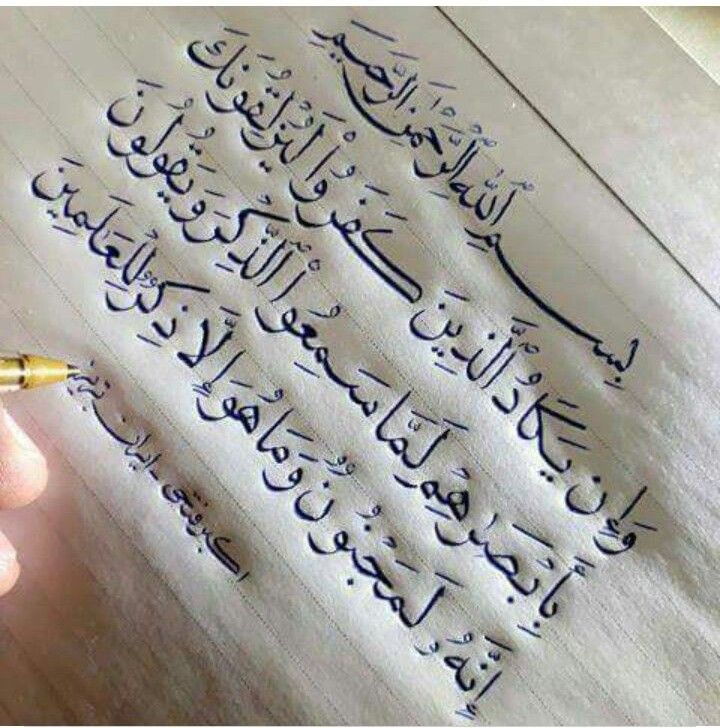 بِسْمِ اللَّهِ الرَّحْمَٰنِ الرَّحِيمِ
وَإِن يَكَادُ الَّذِينَ كَفَرُوا لَيُزْلِقُونَكَ
بِأَبْصَٰرِهِمْ لَمَّا سَمِعُوا الذِّكْرَ وَيَقُولُونَ
إِنَّهُۥ لَمَجْنُونٌ وَمَا هُوَ إِلَّا ذِكْرٌ لِّلْعَالَمِينَ
اکبر فتحی - ایران تبریز